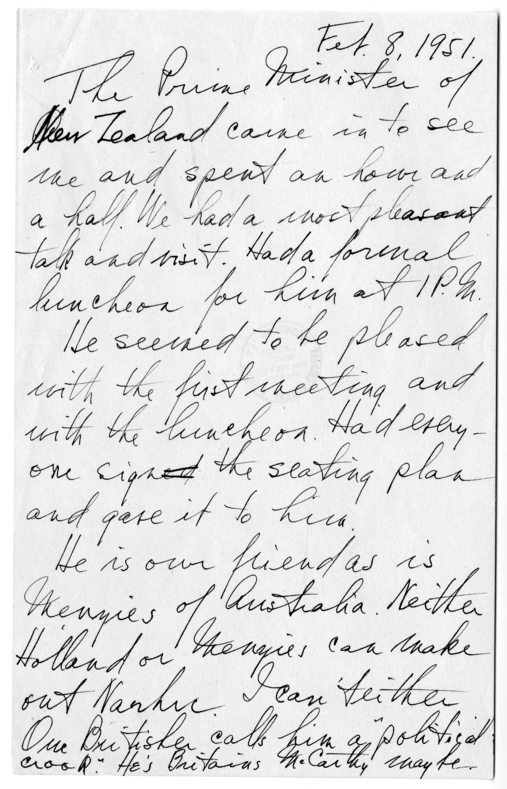 Feb. 8, 1951.
The Prime Minister of
New Zealand came in to see
me and spent an hour and
a half. We had a most pleasant
talk and visit. Had a formal
luncheon for him at 1 P.M.
He seemed to be pleased
with the first meeting and
with the luncheon. Had every-
one sign the seating plan
and gave it to him.
He is our friend as is
Menzies of Australia. Neither
Holland or Menzies can make
out Nerhu. I can't either
One Britisher calls him a "political
crook." He's Britains McCarthy maybe.